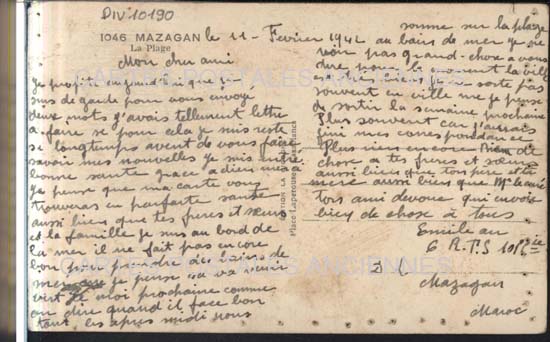 DIV10190
1046 MAZAGAN
La Plage
le 11 - Fevrier 1942
Mon cher ami
Je profit
suis de garde pour vous envoyé
deux mots j'avais tellement lettre
a faire se pour cela je suis resté
si longtemps avent de vous faire
savoir mes nouvelles je suis
bonne santé grace a dieu mes
Je pense que ma carte vous
trouvera en parfaite santé
aussi bien que tes freres et sœurs
et la famille je suis au bord de
la mer il ne fait pas encore
bon pour prendre des bains de
mer je pense sa va venir
vers le mois prochaine comme
on dire quand il fasse bon
tout les après midi nous
somme sur la plage
au bains de mer je ne
voir pas grand-chose a vous
dire pour le moment la ville
je ne sorte pas
souvent en ville me je pense
de sortir la semaine prochaine
Plus souvent car j'aurais
fini mes correspondances
Plus rien encore Bien de
chose a tes freres et sœurs
aussi bien que ton père et ta
mere aussi bien que
ton ami devoué qui envoie
bien de chose à tous
Emile au
6 R.T.S 10e Cie
D.C
Mazagan
Maroc
CARTES POSTALES ANCIENNES
CARTES POSTALES ANCIENNES